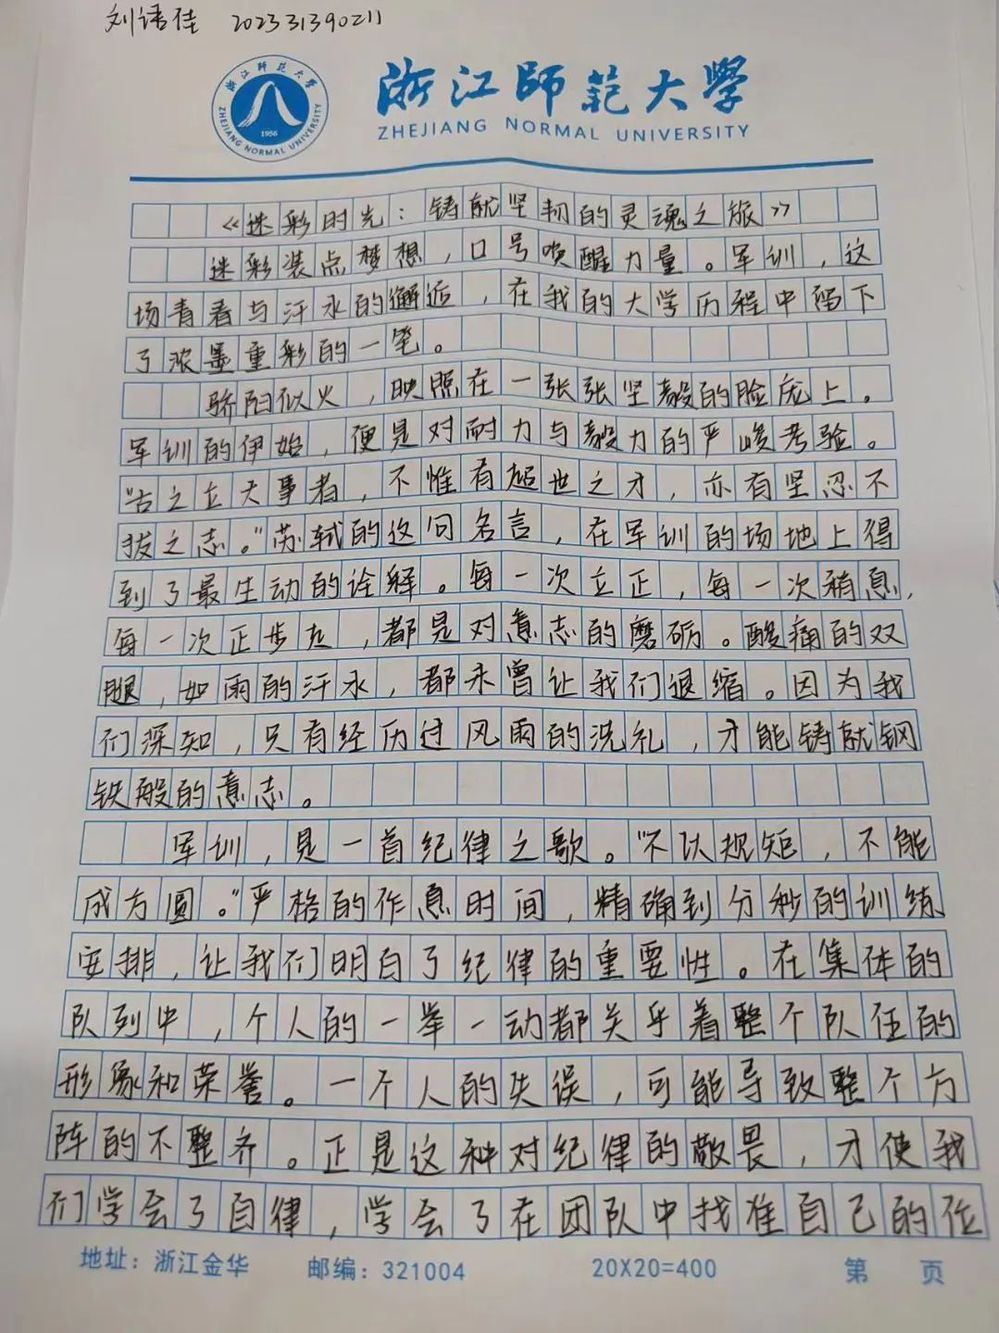 刘语佳 202331390211
浙江师范大学
ZHEJIANG NORMAL UNIVERSITY
浙江师范大学
ZHEJIANG NORMAL UNIVERSITY
1956
《迷彩时光：铸就坚韧的灵魂之旅》
迷彩装点梦想，口号唤醒力量。军训，这
场青春与汗水的邂逅，在我的大学历程中留下
了浓墨重彩的一笔。
骄阳似火，映照在一张张坚毅的脸庞上。
军训的伊始，便是对耐力与毅力的严峻考验。
“古之立大事者，不惟有超世之才，亦有坚忍不
拔之志。”苏轼的这句名言，在军训的场地上得
到了最生动的诠释。每一次立正，每一次稍息，
每一次正步走，都是对意志的磨砺。酸痛的双
腿，如雨的汗水，都未曾让我们退缩。因为我
们深知，只有经历过风雨的洗礼，才能铸就钢
铁般的意志。
军训，是一首纪律之歌。“不以规矩，不能
成方圆。”严格的作息时间，精确到分秒的训练
安排，让我们明白了纪律的重要性。在集体的
队列中，个人的一举一动都关乎着整个队伍的
形象和荣誉。一个人的失误，可能导致整个方
阵的不整齐。正是这种对纪律的敬畏，才使我
们学会了自律，学会了在团队中找准自己的位
地址：浙江金华 邮编：321004 20X20=400 第 页